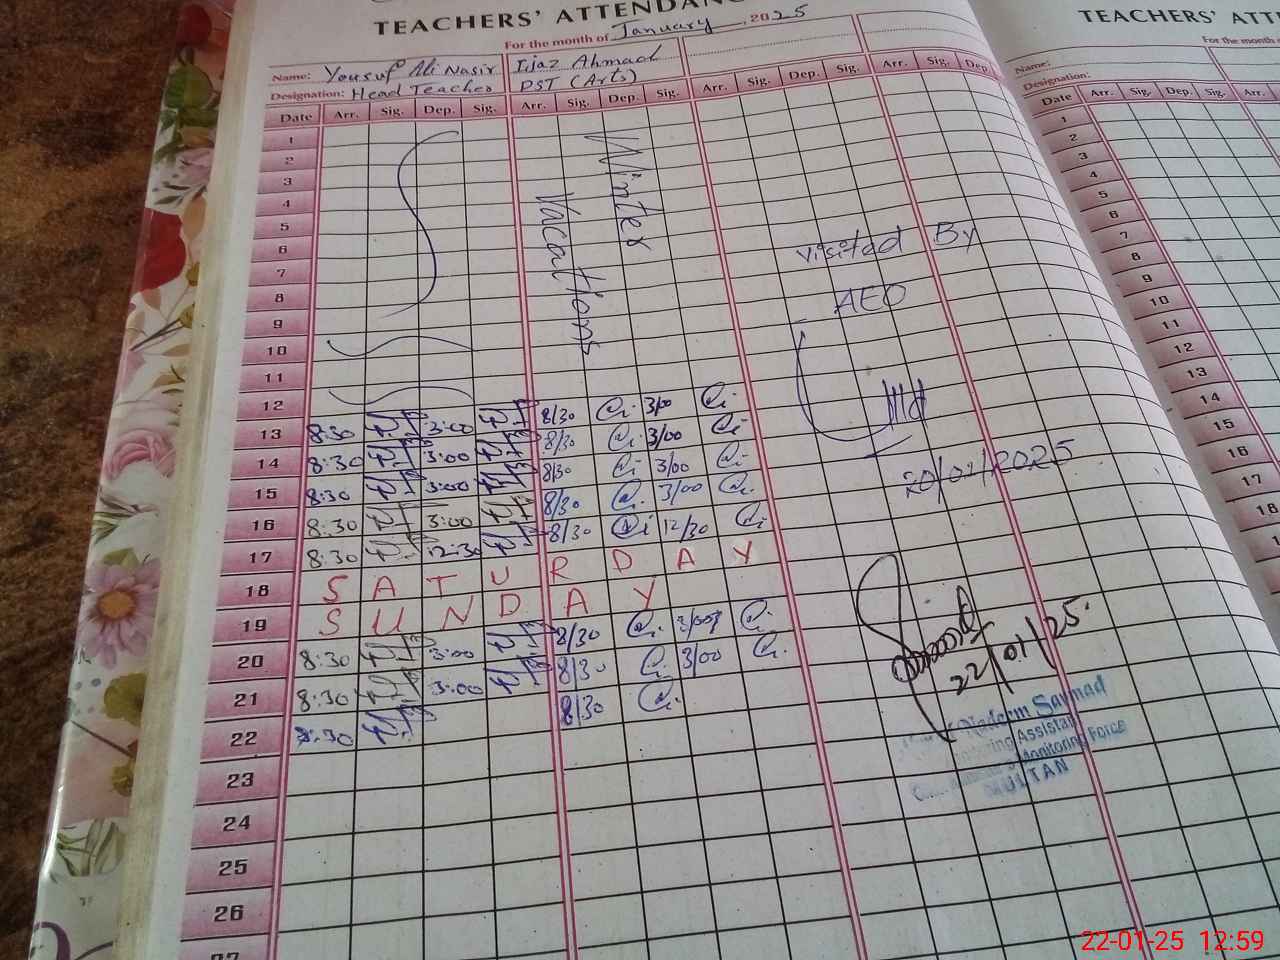 TEACHERS' ATTENDANC
For the month of January, 2025
Name: Yousuf Ali Nasir Ijaz Ahmad
Designation: Head Teacher PST (Arts)
Date Arr. Sig. Dep. Sig. Arr. Sig. Dep. Sig. Arr. Sig. Dep. Sig. Arr. Sig. Dep
1
2
3
4
5
6
7
8
9
10
11
12
Winter
Vacations
13 8:30 3:00 8/30 3/00
14 8:30 3:00 8/30 3/00
15 8:30 3:00 8/30 3/00
16 8:30 3:00 8/30 3/00
17 8:30 12:30 8/30 12/30
18 SATURDAY
19 SUNDAY
20 8:30 3:00 8/30 3/00
21 8:30 3:00 8/30 3/00
22 8:30 8/30
23
24
25
26
27
Visited By
AEO
20/01/2025
22/01/25
Nadeem Sarmad
Monitoring Assistant
Monitoring Force
MULTAN
TEACHERS' ATT
For the month
Name:
Designation:
Date Arr. Sig. Dep. Sig. Arr.
1
2
3
4
5
6
7
8
9
10
11
12
13
14
15
16
17
18
22-01-25 12:59